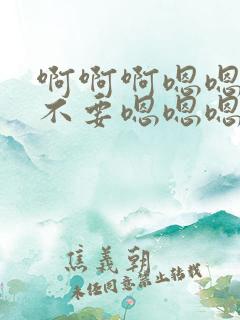 啊啊啊嗯嗯
不要嗯嗯嗯
焦義朝
未经同意禁止转载